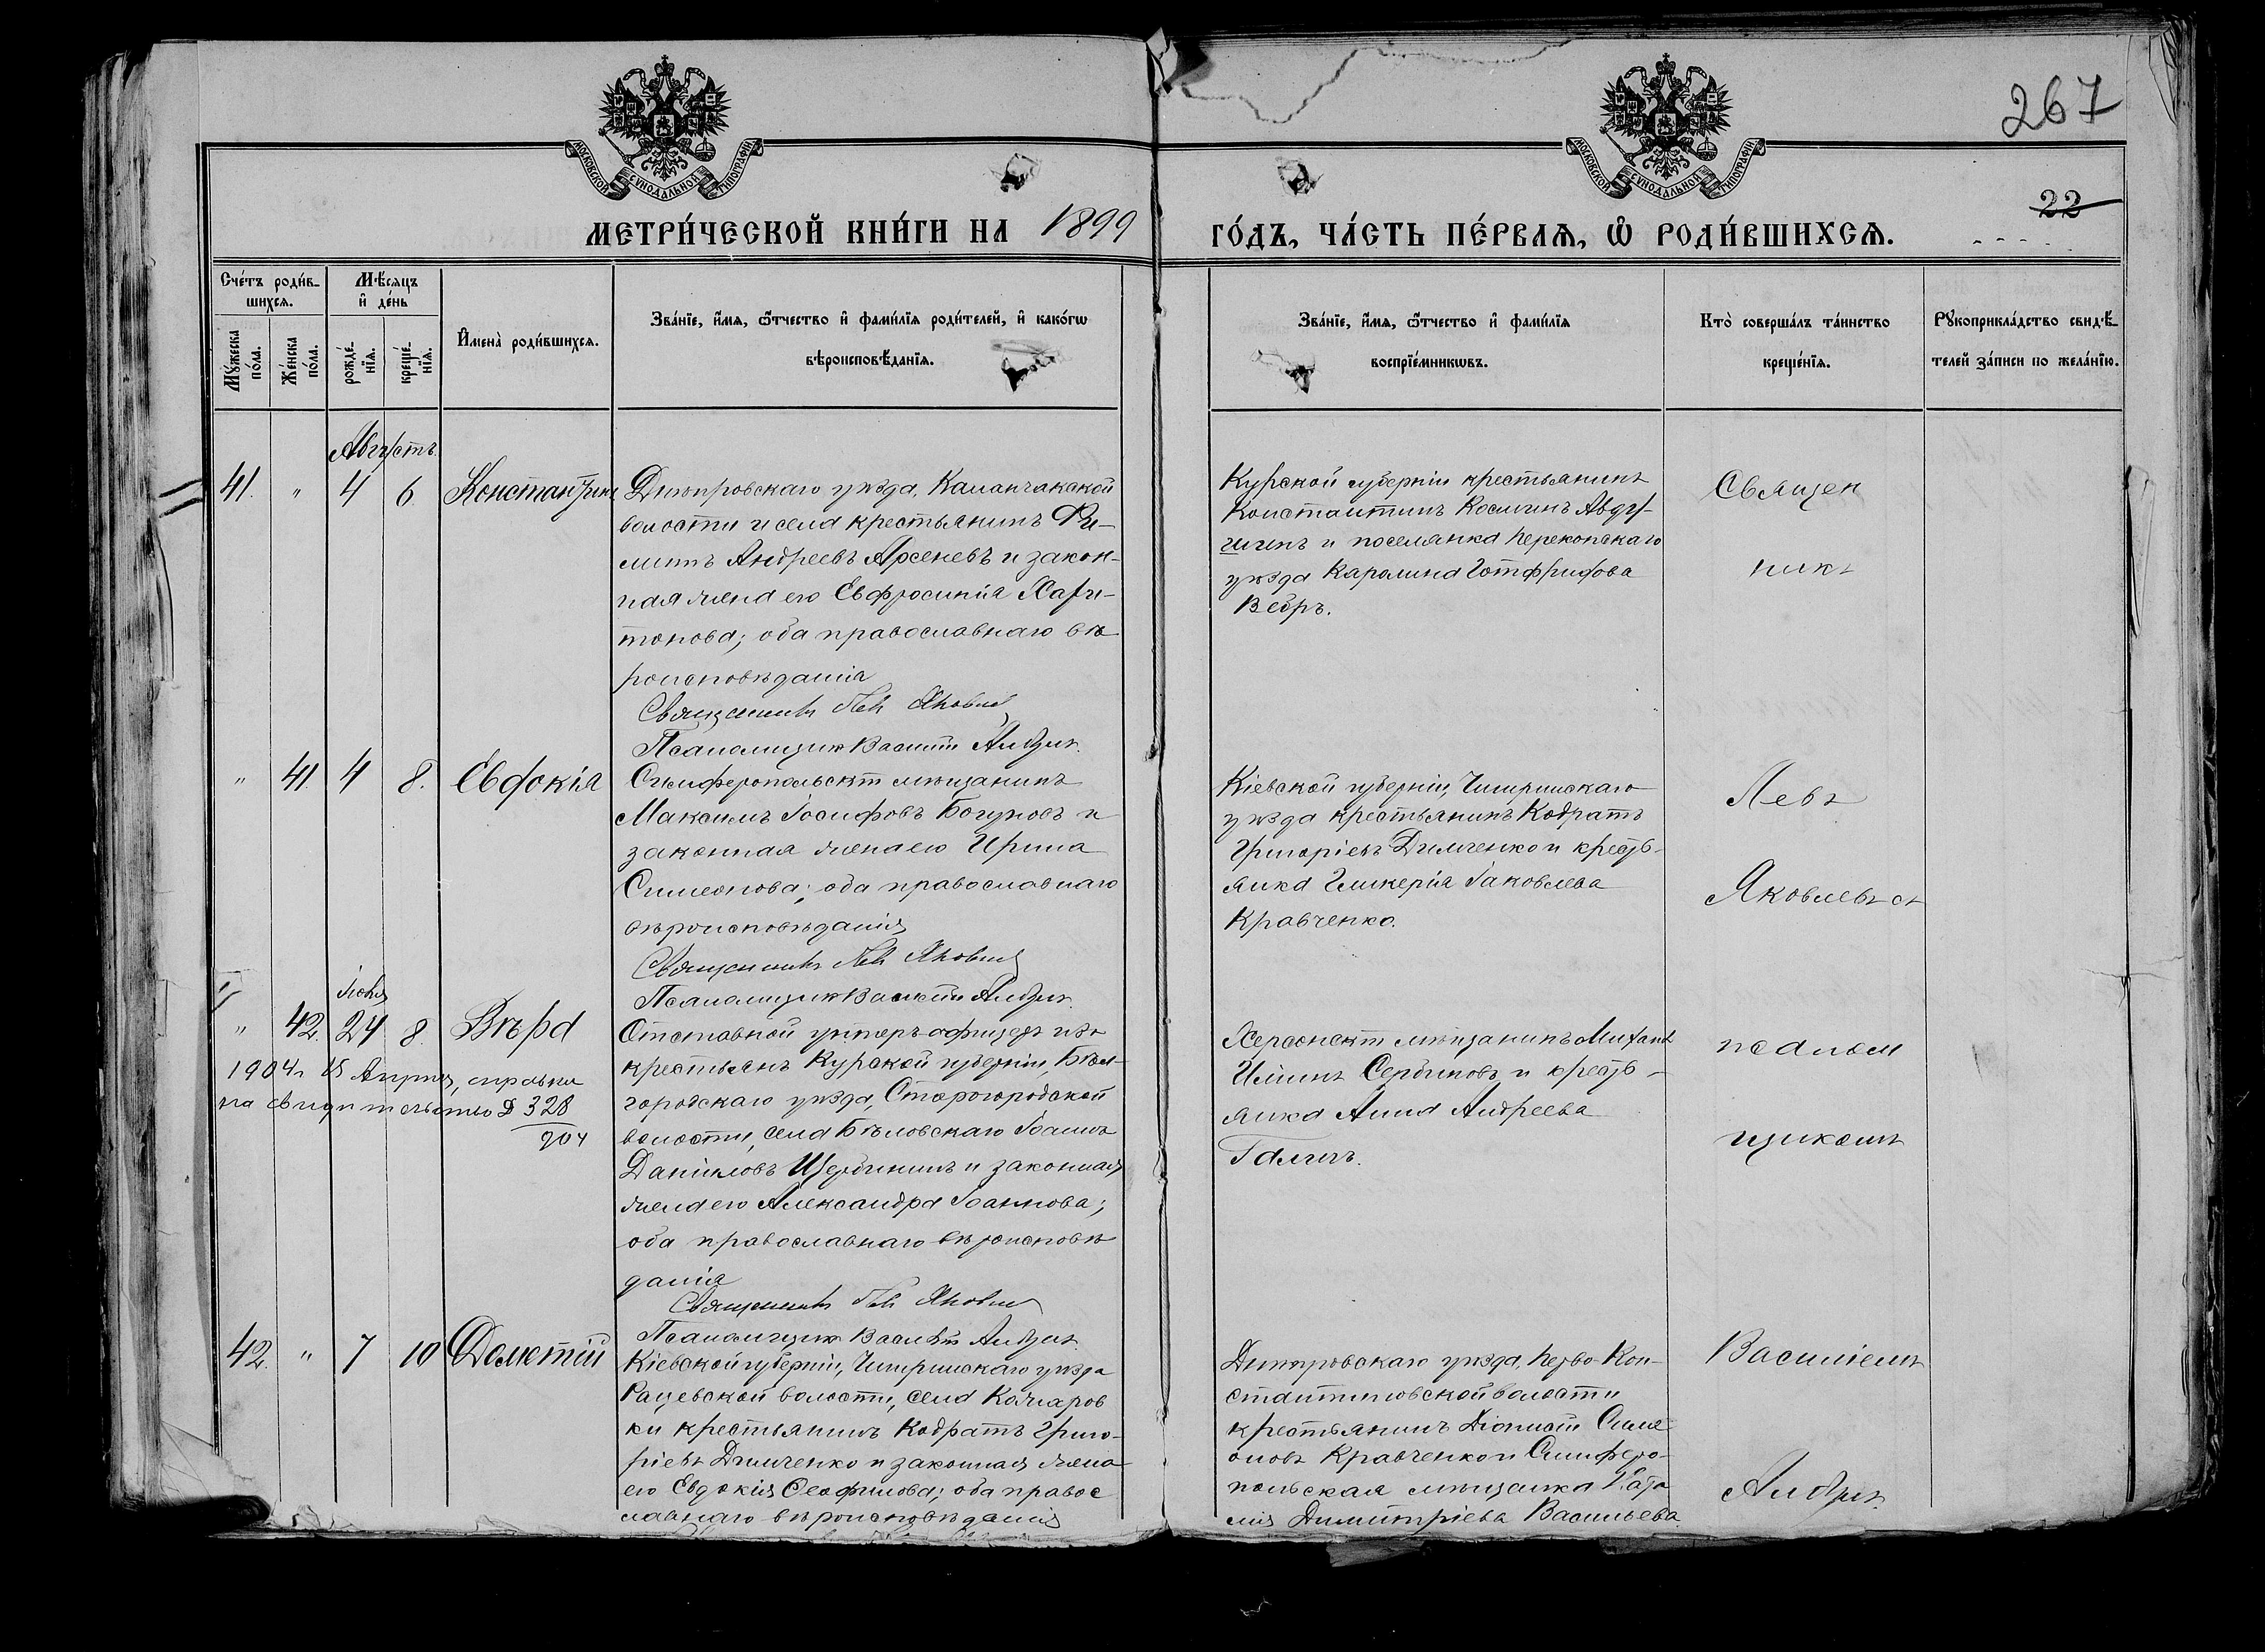 267
22
МОСКОВСКОЙ СУНОДАЛЬНОЙ ТИПОГРАФІИ
МОСКОВСКОЙ СУНОДАЛЬНОЙ ТИПОГРАФІИ
МЕТРИ́ЧЕСКОЙ КНИ́ГИ НА 1899 ГО́ДЪ, ЧА́СТЬ ПЕ́РВАѦ, Ѽ РОДИ́ВШИХСѦ.
Сче́тъ роди́в-
шихсѧ.
Мꙋ́жеска
по́ла.
Же́нска
по́ла.
Мѣ́сѧцъ
и҆ де́нь
рожде́-
нїѧ.
креще́-
нїѧ.
И҆мена̀ роди́вшихсѧ.
Зва́нїе, и҆́мѧ, ѻ҆́тчество и҆ фами́лїѧ роди́телей, и҆ како́гѡ
вѣроисповѣ́данїѧ.
Зва́нїе, и҆́мѧ, ѻ҆́тчество и҆ фами́лїѧ
воспрїе́мникѡвъ.
Кто̀ соверша́лъ та́инство
креще́нїѧ.
Рꙋкоприкла́дство свидѣ́-
телей за́писи по жела́нїю.
Августъ
41. " 4 6 Константинъ
Днѣпровскаго уѣзда, Каланчакской
волости и села крестьянинъ Фи-
липпъ Андреевъ Арсеневъ и закон-
ная жена его Евфросинія Хари-
тонова; оба православнаго вѣ
роисповѣданія
Священникъ Левъ Яковлевъ
Псаломщикъ Василій
Курской губерніи крестьянинъ
Константинъ Косминъ
и поселянка Перекопскаго
уѣзда Каролина Готфридова
Вебръ.
Священ
никъ
" 41. 4 8. Евдокія
Симферопольскій мѣщанинъ
Максимъ Іосифовъ Богуновъ и
законная жена его Ирина
Симеонова; оба православнаго
вѣроисповѣданія
Священникъ Левъ Яковлевъ
Псаломщикъ Василій
Кіевской губерніи, Чигиринскаго
уѣзда крестьянинъ Кодратъ
Григоріевъ Димченко и кресть-
янка Гликерія Іаковлева
Кравченко.
Левъ
Яковлевъ съ
Іюля
" 42. 24 8. Вѣра
1904 г. 15 Апрѣля, справка
на свидѣтельство № 328
904
Отставной унтеръ-офицеръ изъ
крестьянъ Курской губерніи, Бѣл-
городскаго уѣзда, Старогородской
волости, села Бѣловскаго Іоаннъ
Даніиловъ Щербининъ и законная
жена его Александра Іоаннова;
оба православнаго вѣроисповѣ
данія
Священникъ Левъ Яковлевъ
Псаломщикъ Василій
Херсонскій мѣщанинъ Михаилъ
Ильинъ Сербиновъ и кресть-
янка Анна Андреева
псалом
щикомъ
42. " 7 10 Дометій
Кіевской губерніи, Чигиринскаго уѣзда
Рацевской волости, села Кожаров
ки крестьянинъ Кодратъ Григо-
ріевъ Димченко и законная жена
его Евдокія Ѳеофилова; оба правос
лавнаго вѣроисповѣданія
Днѣпровскаго уѣзда, Перво-Кон-
стантиновской волости
крестьянинъ Діонисій Симе-
оновъ Кравченко и Симферо-
польская мѣщанка
Димитріева Васильева
Василіемъ